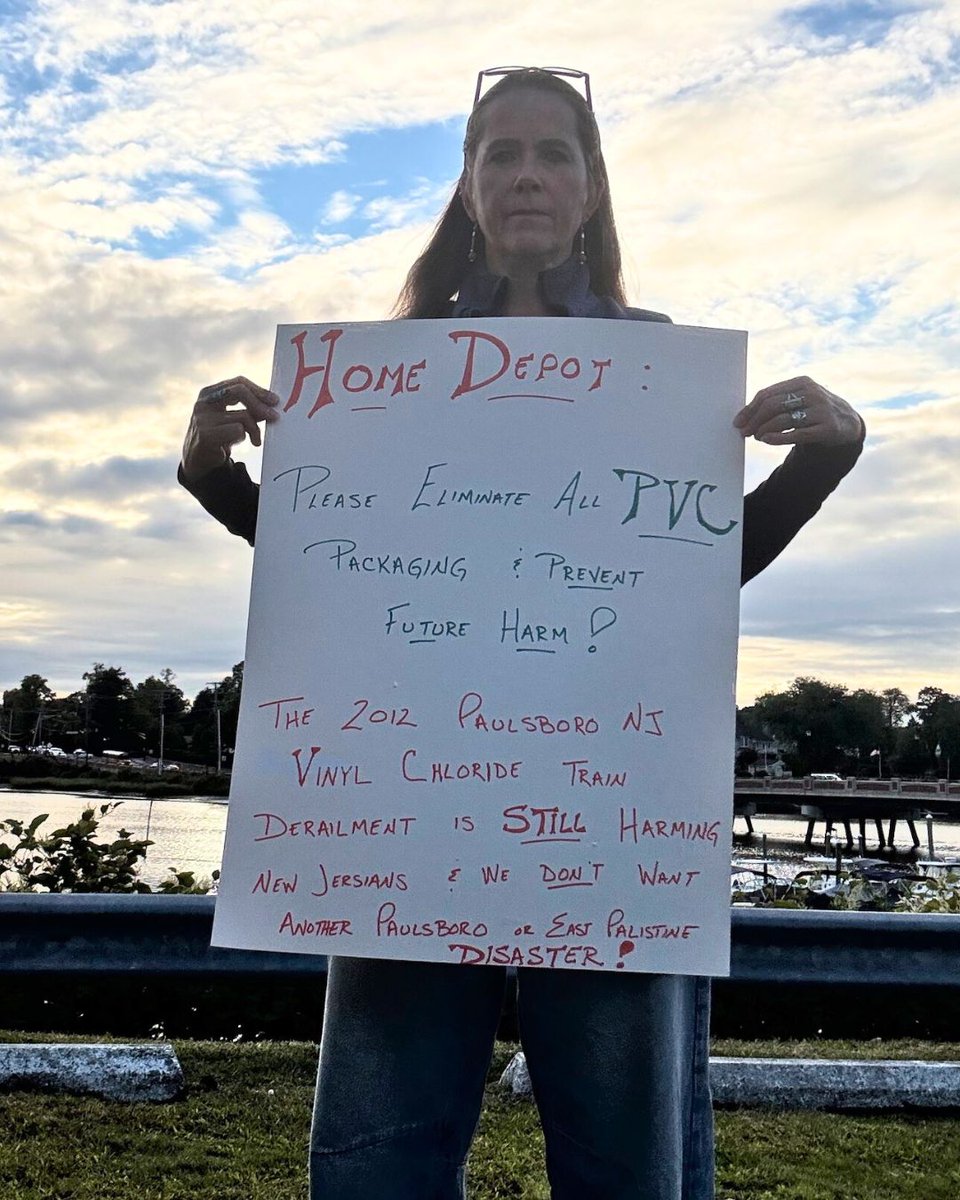 HOME DEPOT :
PLEASE ELIMINATE ALL PVC
PACKAGING & PREVENT
FUTURE HARM!
THE 2012 PAULSBORO NJ
VINYL CHLORIDE TRAIN
DERAILMENT IS STILL HARMING
NEW JERSIANS & WE DON'T WANT
ANOTHER PAULSBORO OR EAST PALISTINE
DISASTER!